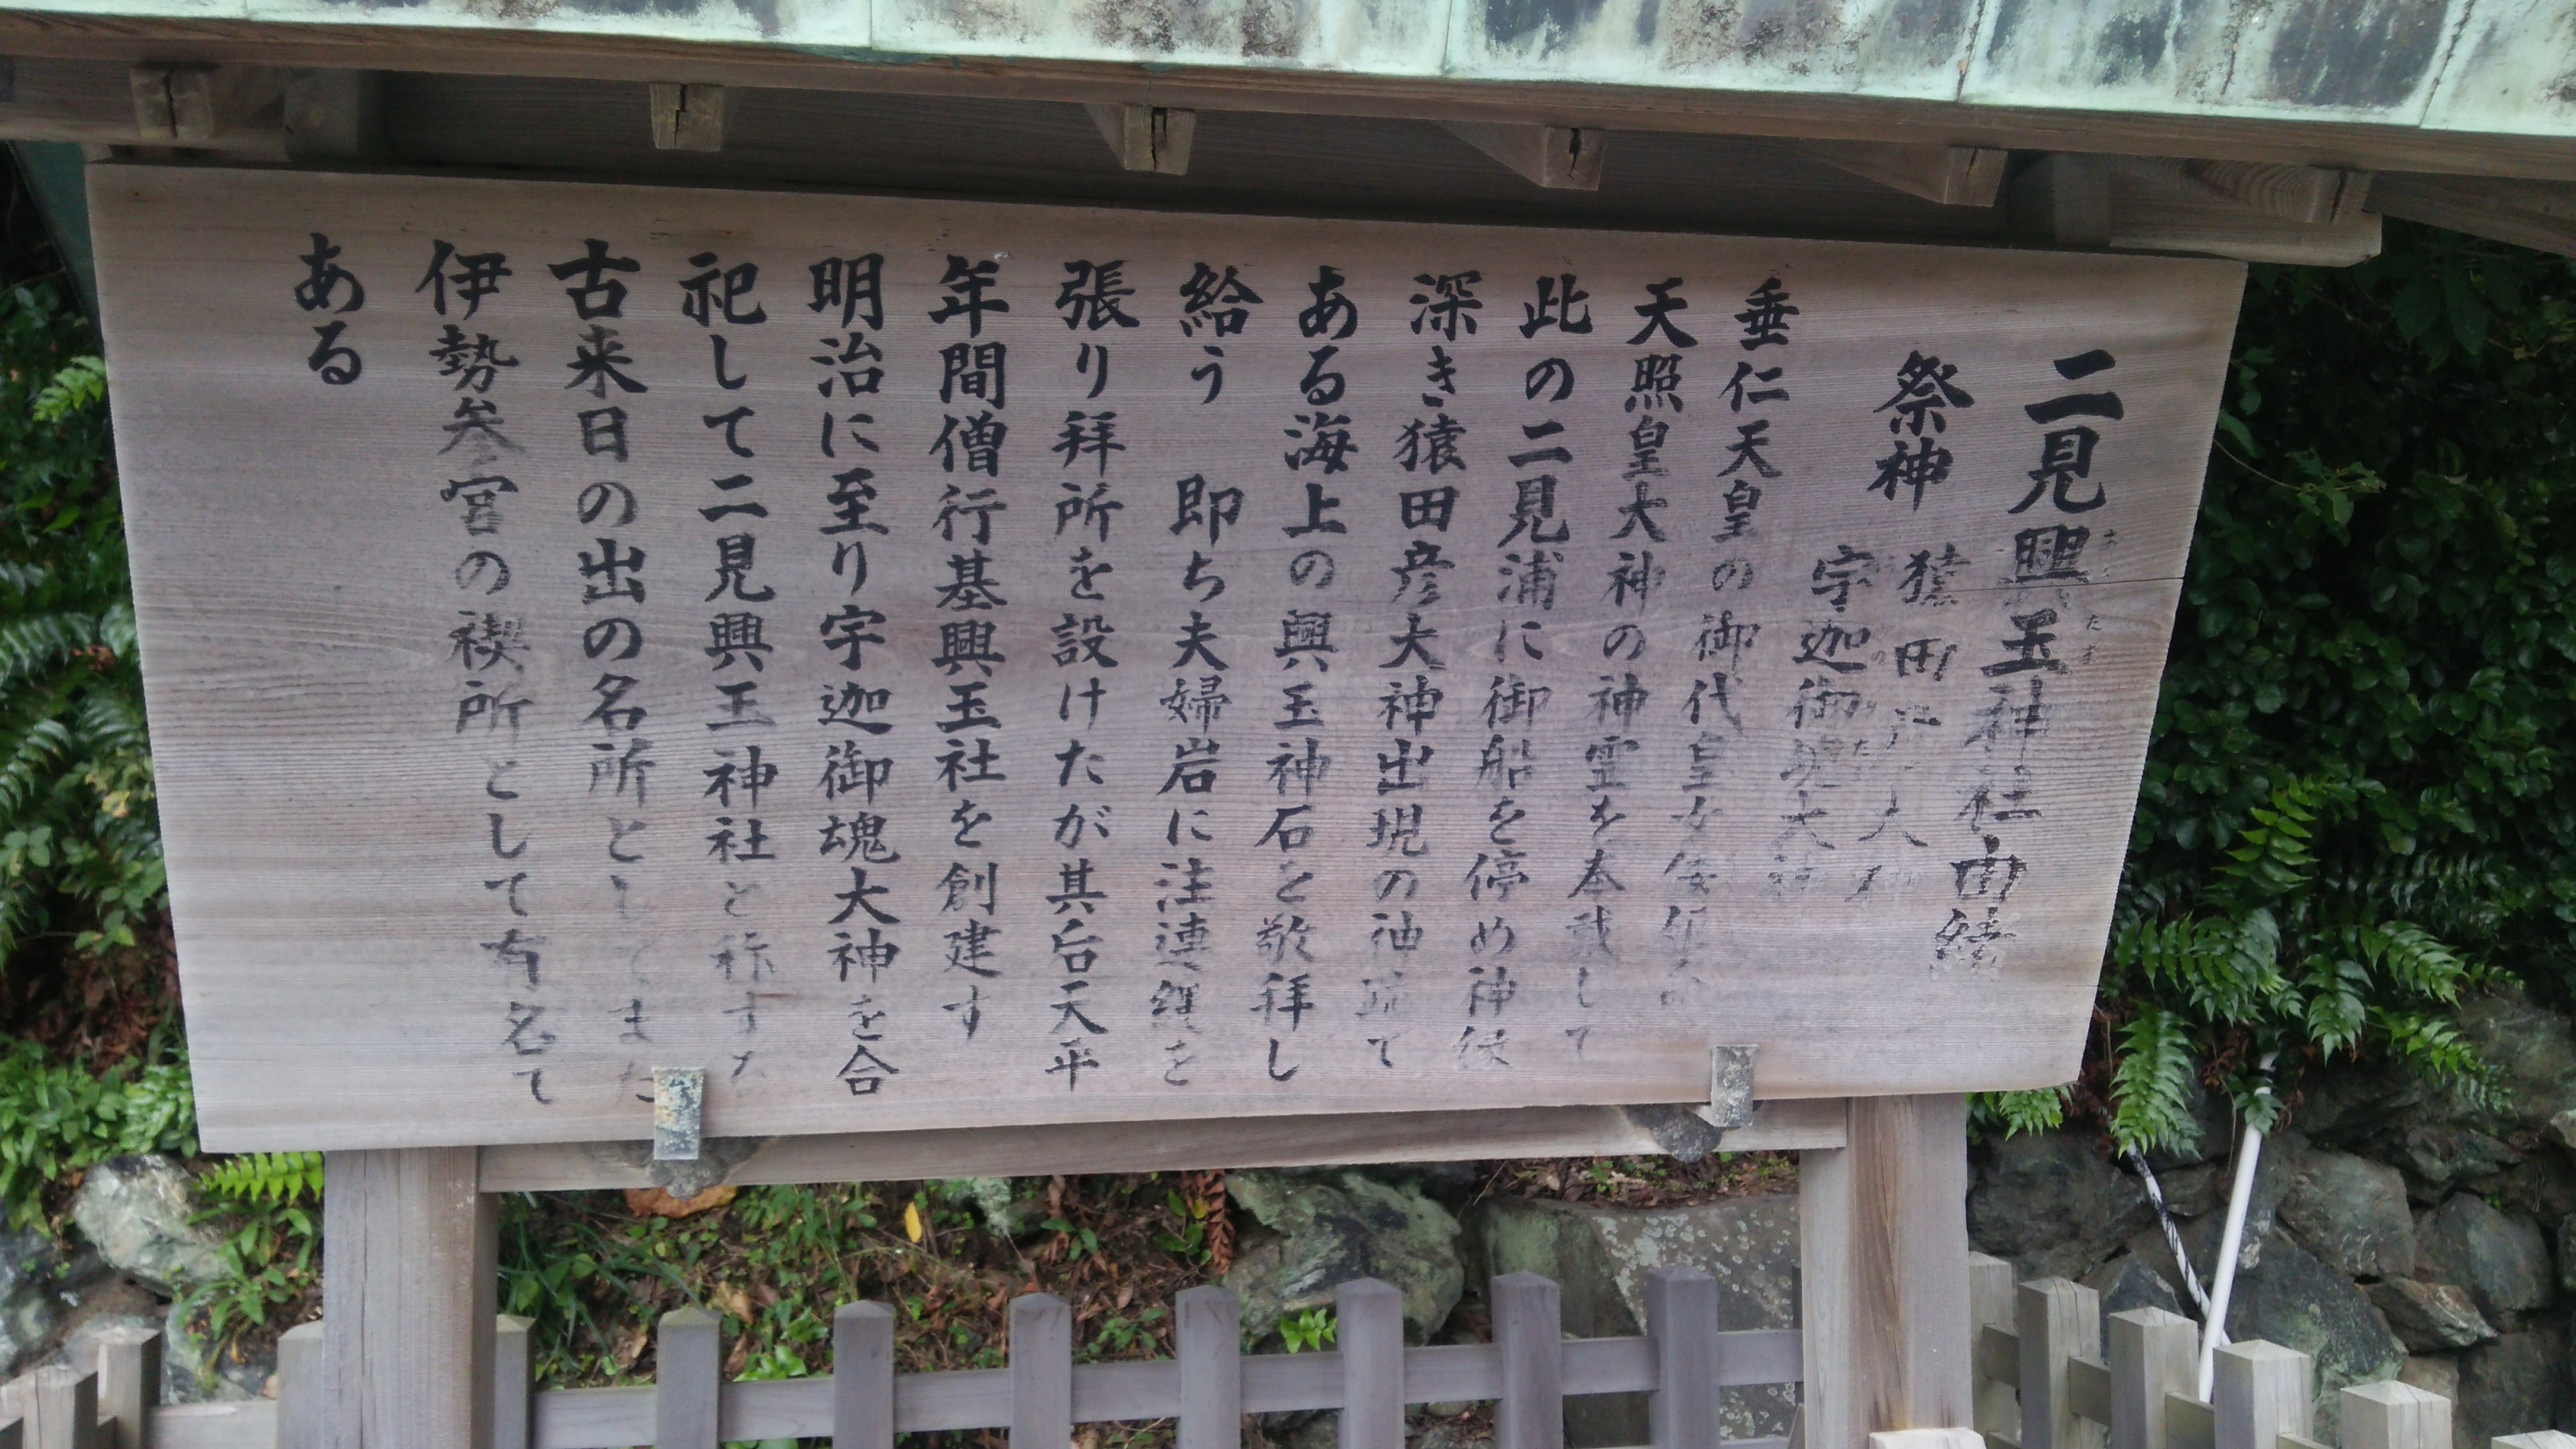 二見興玉神社由緒
祭神 猿田彦大神
宇迦御魂大神
垂仁天皇の御代皇女倭姫命
天照皇大神の神霊を奉戴して
此の二見浦に御船を停め神縁
深き猿田彦大神出現の神跡て
ある海上の興玉神石を敬拝し
給う 即ち夫婦岩に注連縄を
張り拜所を設けたが其后天平
年間僧行基興玉社を創建す
明治に至り宇迦御魂大神を合
祀して二見興玉神社と称すた
古来日の出の名所としてまた
伊勢参宮の禊所として有名て
ある